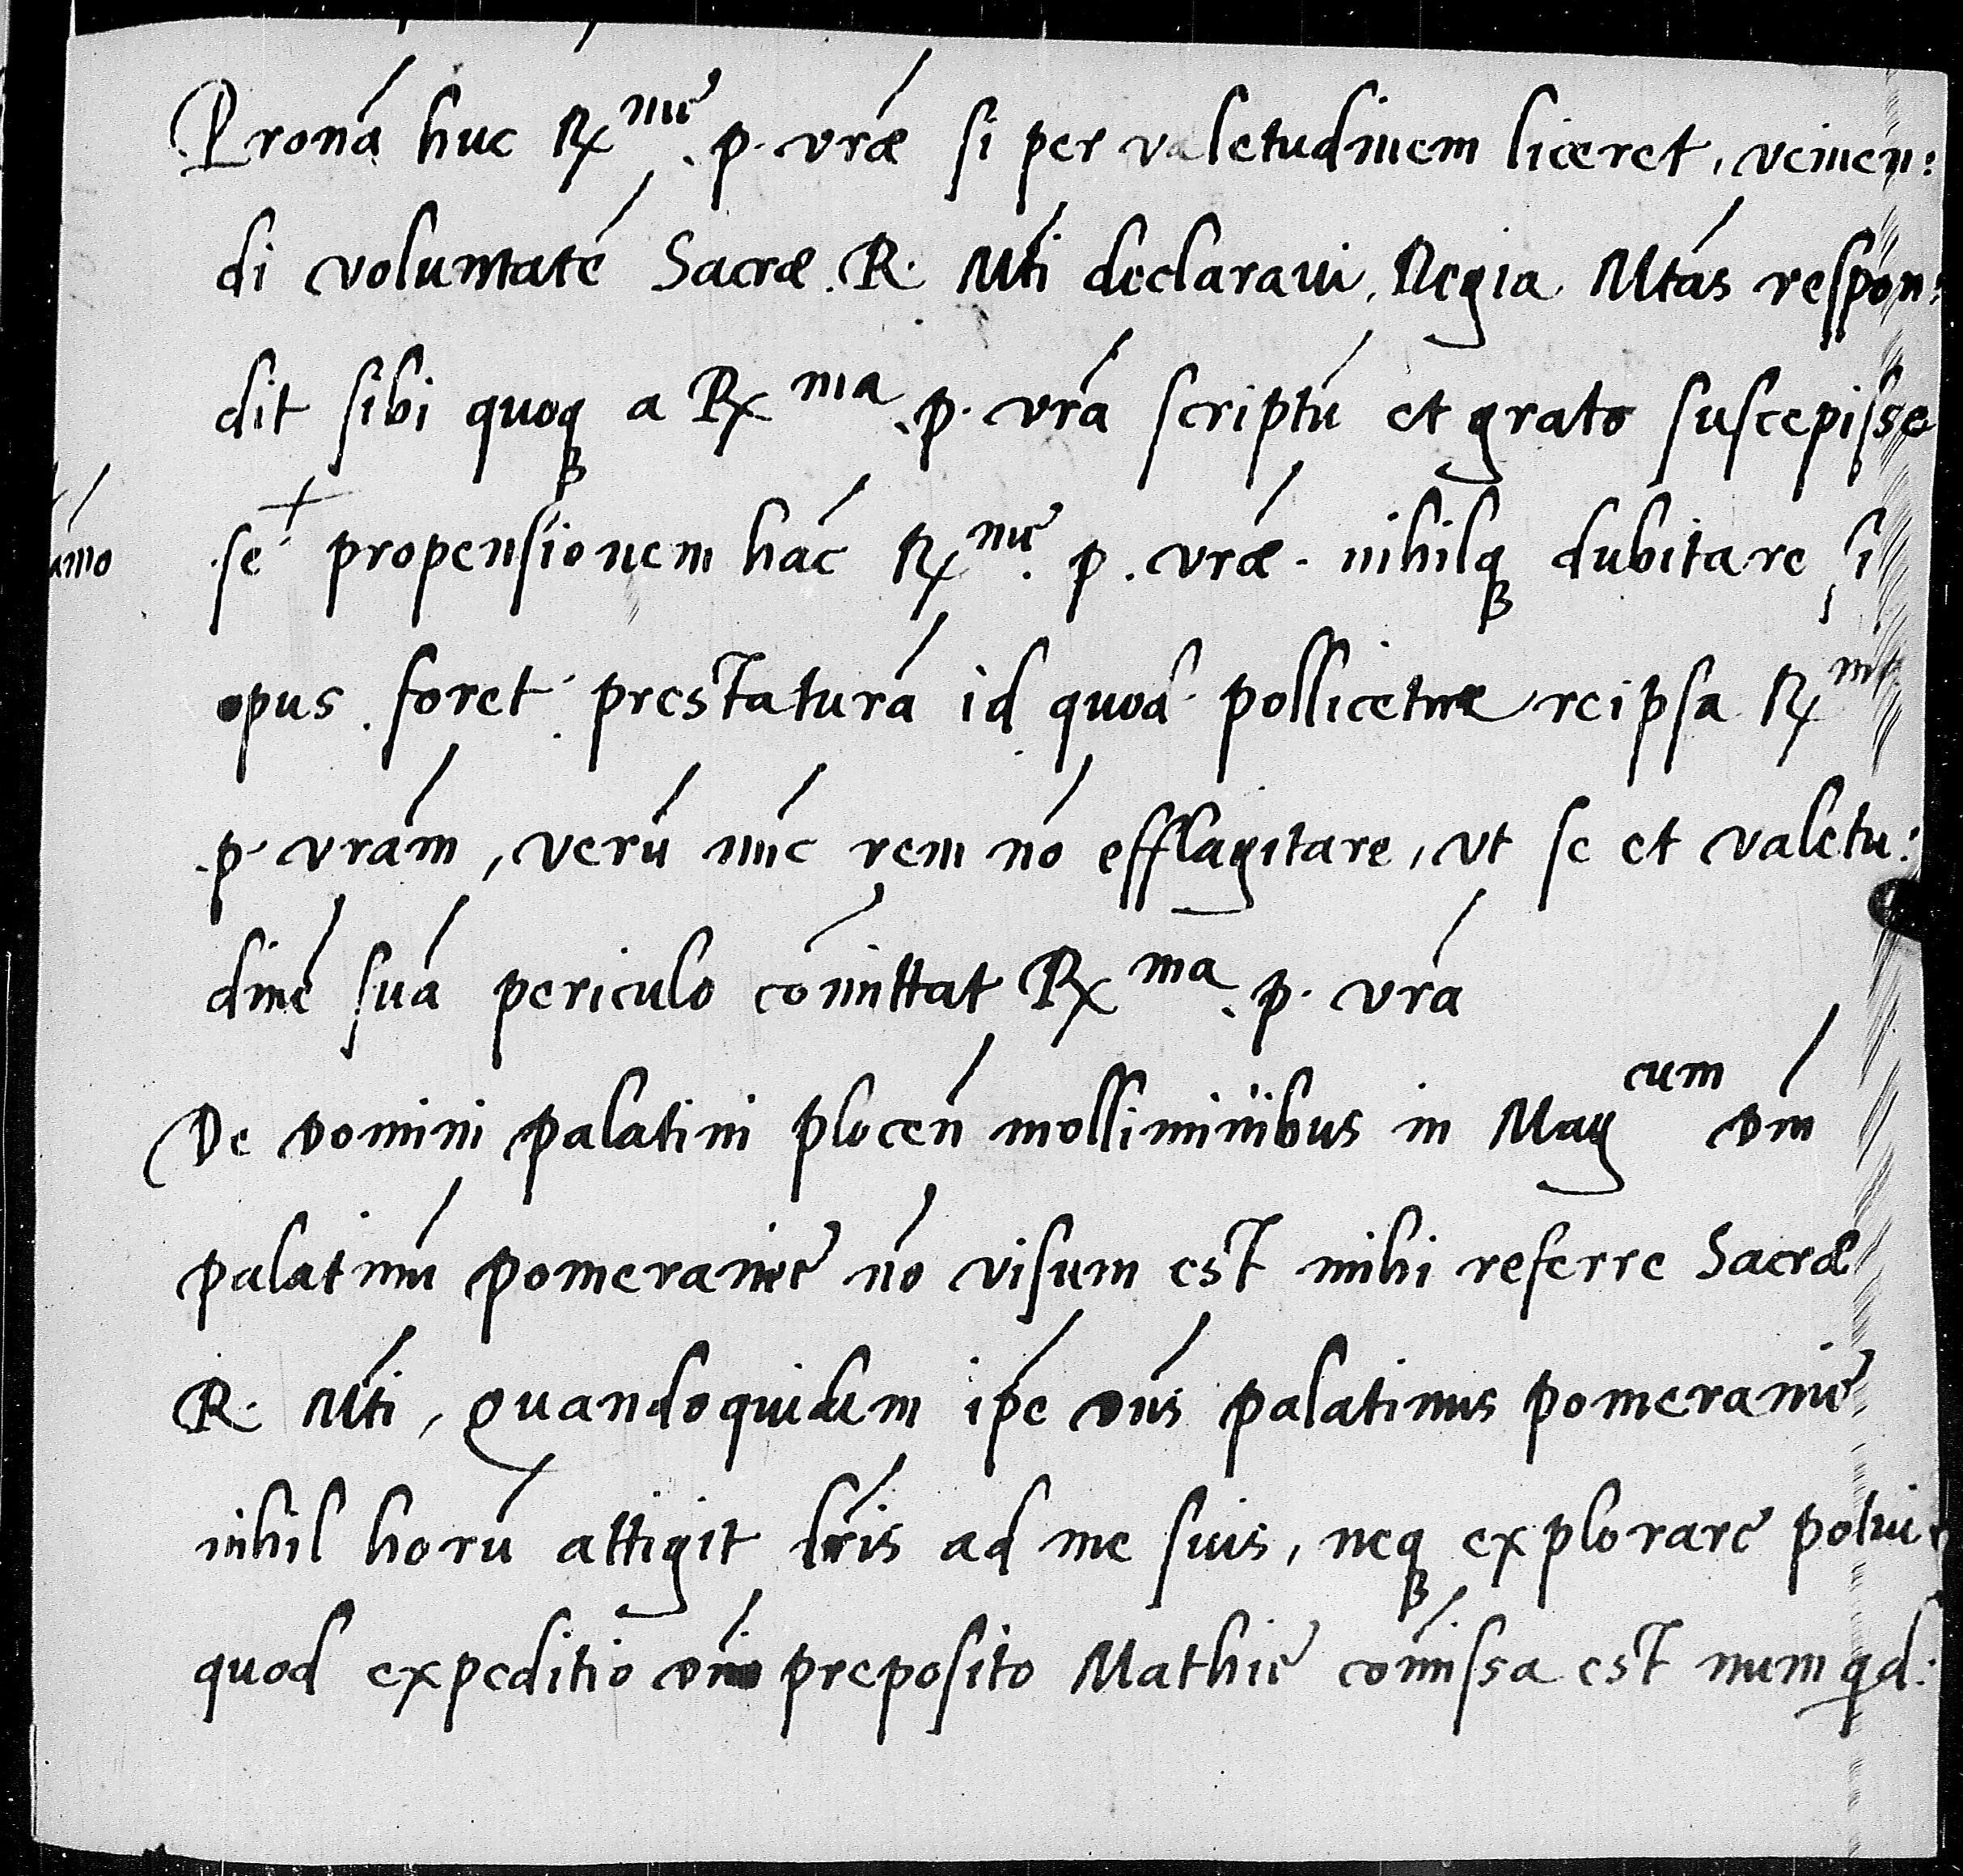 Pronā huc Rx^mę p. vrāe si per valetudinem liceret, venien:
di voluntatē Sacrae R. Mti declaraui, Regia Mtas respon:
dit sibi quoqȝ a Rx^ma p. vrā scriptū et grato suscepisse
se + propensionem hāc Rx^mę p. vrāe nihilqȝ dubitare, si
opus foret prestaturā id quod pollicetur reipsa Rx
p. vrām, verū nūc rem nō efflagitare, vt se et valetu:
dinē suā periculo cōmittat Rx^ma p. vrā
De domini palatini plocen̄ molliminibus in Mag^cum dn̄m
palatinū pomeranię nō visum est mihi referre Sacrae
R. Mti, quandoquidem ip̄e dn̄s palatinus pomeranię
nihil horū attigit lr̄is ad me suis, neqȝ explorare potui
quod expeditio dn̄o preposito Mathię cōmissa est num qd: